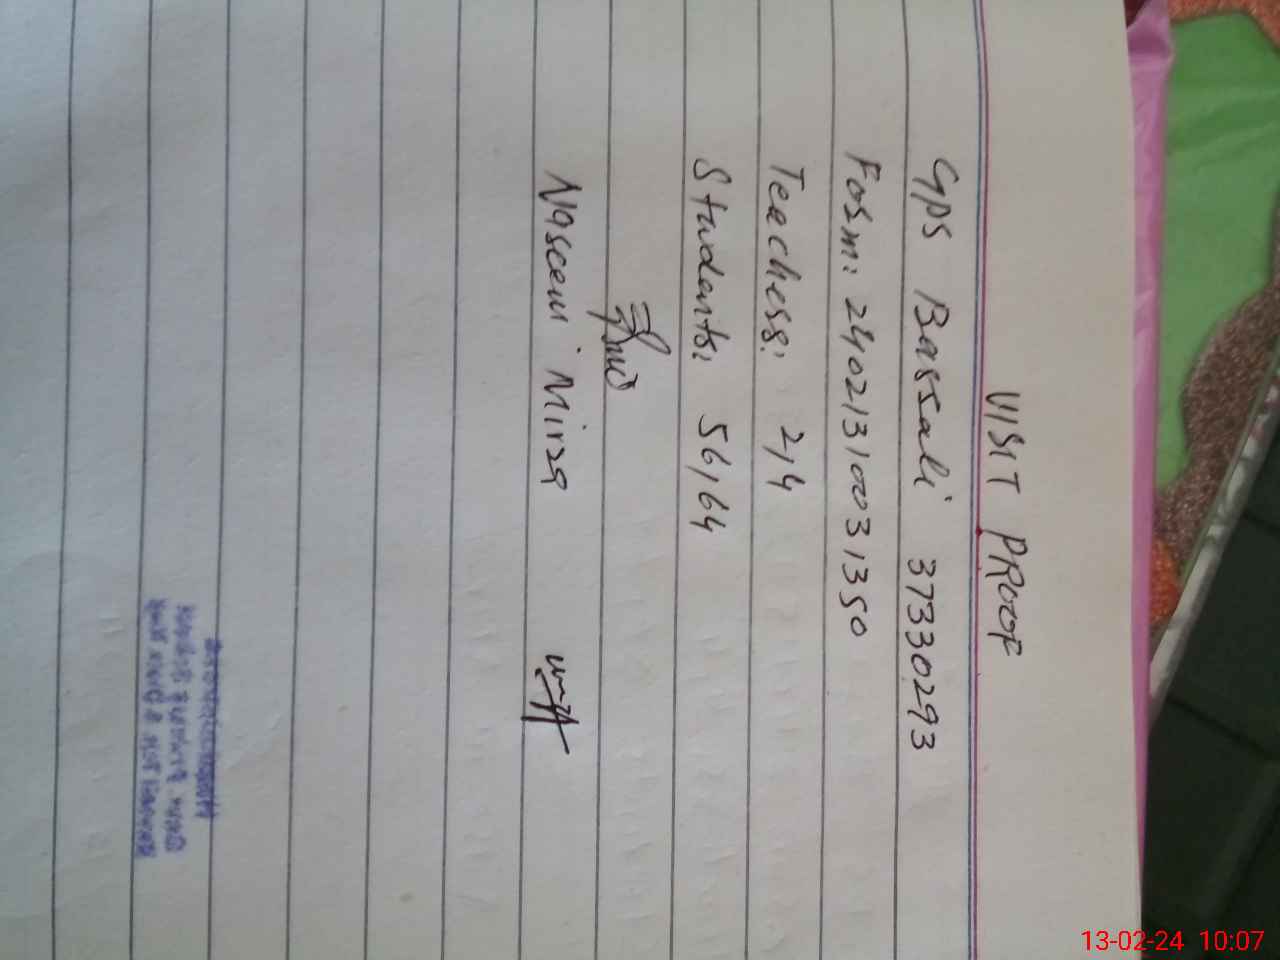 VISIT PROOF
GPS Bassali 37330293
Form: 24021310031350
Teachers: 2,4
Students: 56,64
Naseem Mirza
13-02-24 10:07